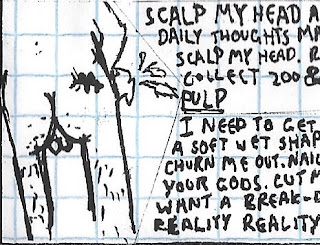 SCALP MY HEAD A
DAILY THOUGHTS MA
SCALP MY HEAD. R
COLLECT 200 &
PULP
I NEED TO GET
A SOFT WET SHAP
CHURN ME OUT. NAIL
YOUR GODS. CUT M
WANT A BREAK-D
REALITY REALITY